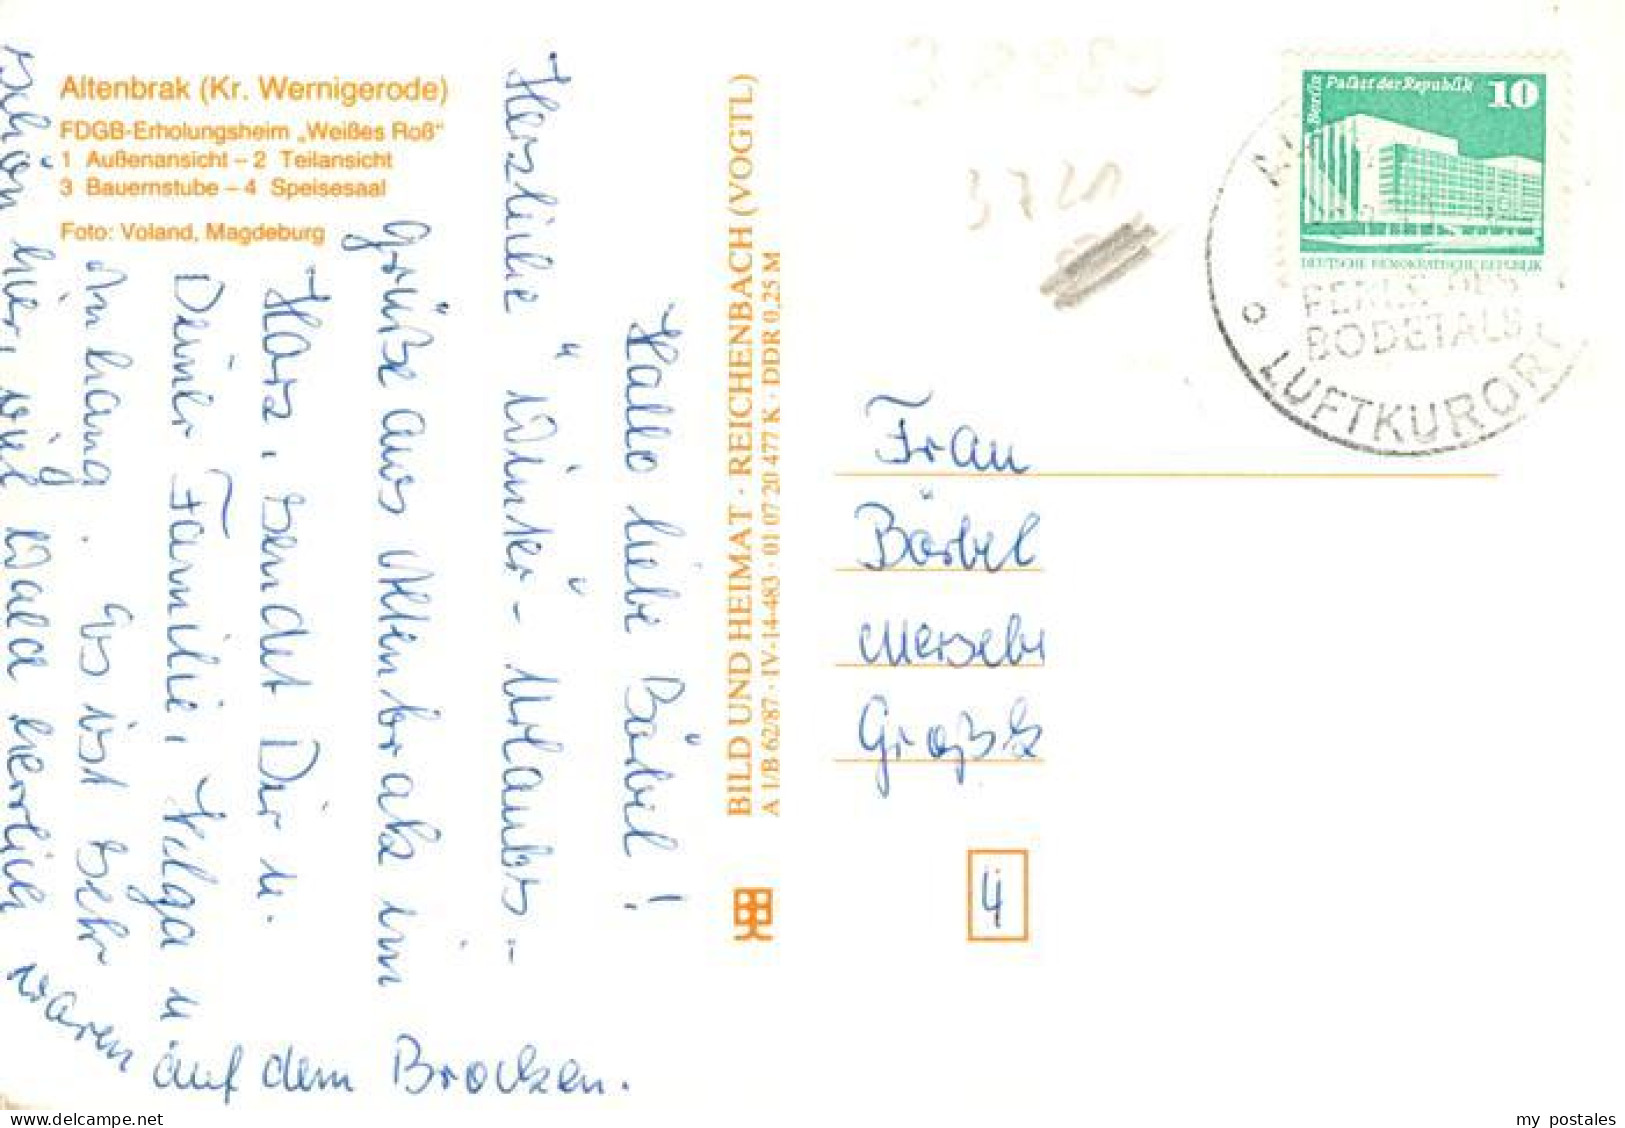 Altenbrak (Kr. Wernigerode)
FDGB-Erholungsheim „Weißes Roß"
1 Außenansicht – 2 Teilansicht
3 Bauernstube – 4 Speisesaal
Foto: Voland, Magdeburg
Hallo liebe Bärbel!
Herzliche "Winter"-Urlaubs-
grüße aus Altenbrak im
Harz, sendet Dir u.
Deiner Familie, Helga u.
Anhang. Es ist sehr
schön hier, viel Wald herrlich
waren auf dem Brocken.
BILD UND HEIMAT · REICHENBACH (VOGTL)
A 1/B 62/87 · IV-14-483 · 01 07 20 477 K · DDR 0,25 M
3721
Berlin Palast der Republik 10
DEUTSCHE DEMOKRATISCHE REPUBLIK
PERLE DES
BODETALS
LUFTKURORT
Frau
Bärbel
Merseb
Groß
4
my postales